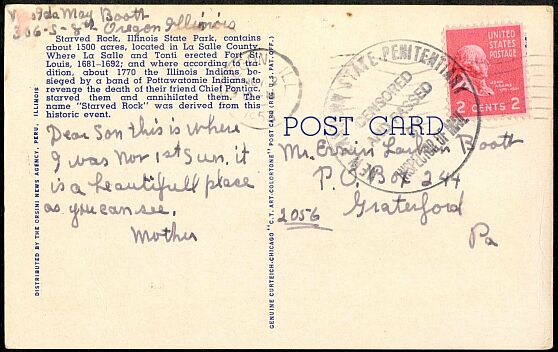 Ida May Booth
306-S-8th Oregon Illinois
Starved Rock, Illinois State Park, contains
about 1500 acres, located in La Salle County.
Where La Salle and Tonti erected Fort St.
Louis, 1681-1692; and where according to tra-
dition, about 1770 the Illinois Indians, be-
sieged by a band of Pottawatomie Indians, to
revenge the death of their friend Chief Pontiac,
starved them and annihilated them. The
name "Starved Rock" was derived from this
historic event.
Dear Son this is where
I was Nov 1st Sun. it
is a beautifull place
as you can see.
Mother
DISTRIBUTED BY THE ORSINI NEWS AGENCY, PERU, ILLINOIS
GENUINE CURTEICH-CHICAGO "C.T. ART-COLORTONE" POST CARD (REG. U.S. PAT. OFF.)
ILL
STATE PENITENTIARY
CENSORED
AND PASSED
INSPECTOR OF MAIL
UNITED
STATES
POSTAGE
2 CENTS 2
POST CARD
Mr. Ervin Booth
P.O. Box 244
2056
Graterford
Pa